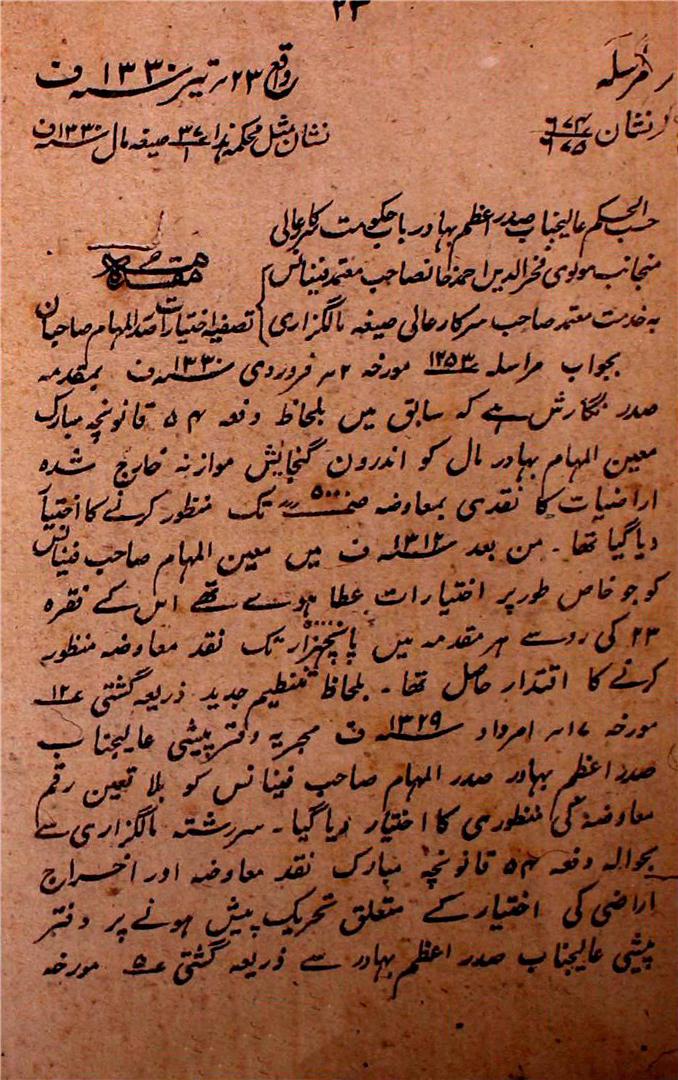 ۲۳
مراسلہ واقع ۲۳؍ تیر ۱۳۳۰ سنہ ف
نشان ۶۷۴/۶۷۵ نشان مثل محکمہ ہذا ۳۷/۱ صیغہ مال ۱۳۳۰ سنہ ف
حسب الحکم عالیجناب صدر اعظم بہادر باب حکومت سرکار عالی
منجانب مولوی فخرالدین احمد خانصاحب معتمد فینانس مقدمہ
بہ خدمت معتمد صاحب سرکار عالی صیغہ مالگزاری تصفیہ اختیارات صدر المہام صاحبان
بجواب مراسلہ ۱۲۵۳ مورخہ ۲؍ فروردی ۱۳۳۰ سنہ ف بمقدمہ
صدر نگارش ہے کہ سابق میں بلحاظ دفعہ ۵۴ قانونچہ مبارک
معین المہام بہادر مال کو اندرون گنجایش موازنہ خارج شدہ
اراضیات کا نقدی بمعاوضہ ۵۰۰ تک منظور کرنے کا اختیار
دیا گیا تھا ۔ من بعد ۱۳۱۲ سنہ ف میں معین المہام صاحب فینانس
کو جو خاص طور پر اختیارات عطا ہوے تھے اس کے فقرہ
۲۳ کی رو سے ہر مقدمہ میں پانچہزار تک نقد معاوضہ منظور
کرنے کا اقتدار حاصل تھا ۔ بلحاظ تنظیم جدید ذریعہ گشتی ۱۲
مورخہ ۱۷؍ امرداد ۱۳۲۹ سنہ ف مجریہ دفتر پیشی عالیجناب
صدر اعظم بہادر صدر المہام صاحب فینانس کو بلا تعین رقم
معاوضہ کی منظوری کا اختیار دیا گیا ۔ سررشتہ مالگزاری سے
بحوالہ دفعہ ۵۴ قانونچہ مبارک نقد معاوضہ اور اخراج
اراضی کی اختیار کے متعلق تحریک پیش ہونے پر دفتر
پیشی عالیجناب صدر اعظم بہادر سے ذریعہ گشتی ۵ مورخہ